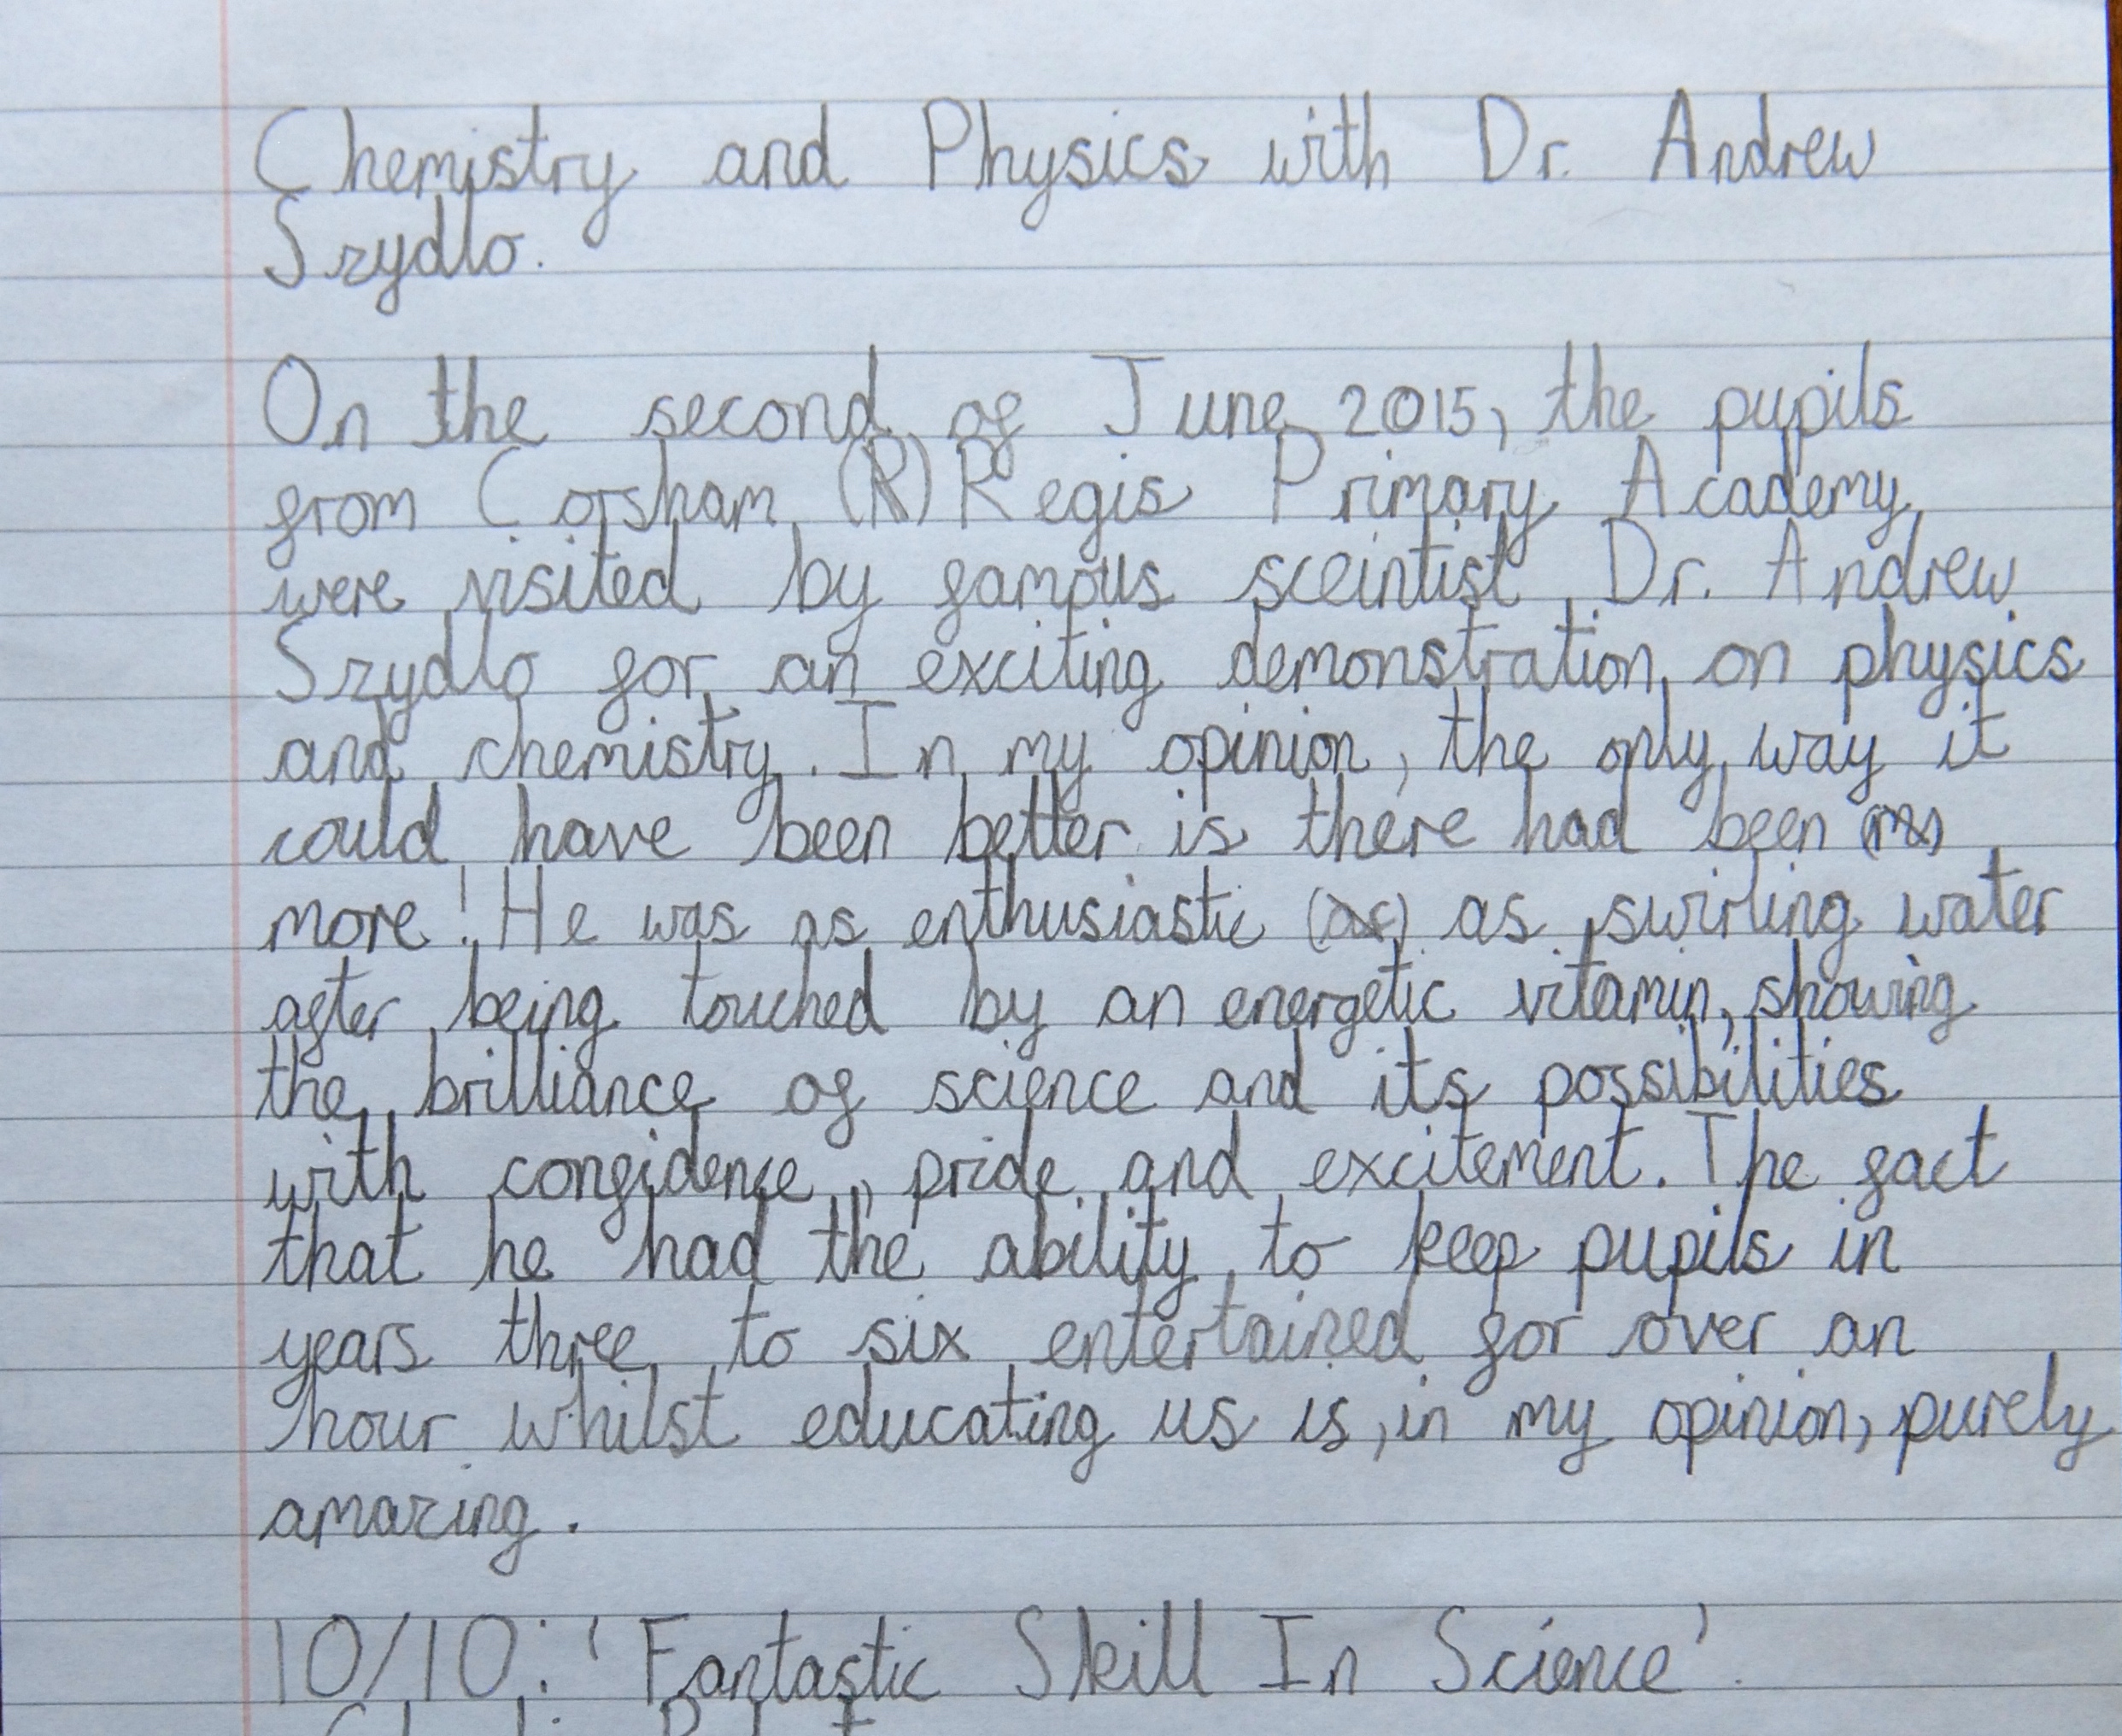 Chemistry and Physics with Dr. Andrew
Szydlo.
On the second of June 2015, the pupils
from Corsham (R) Regis Primary Academy
were visited by famous sceintist Dr. Andrew
Szydlo for an exciting demonstration on physics
and chemistry. In my opinion, the only way it
could have been better is there had been
more! He was as enthusiastic (as) as swirling water
after being touched by an energetic vitamin, showing
the brilliance of science and its possibilities
with confidence, pride and excitement. The fact
that he had the ability to keep pupils in
years three to six entertained for over an
hour whilst educating us is, in my opinion, purely
amazing.
10/10: 'Fantastic Skill In Science'.